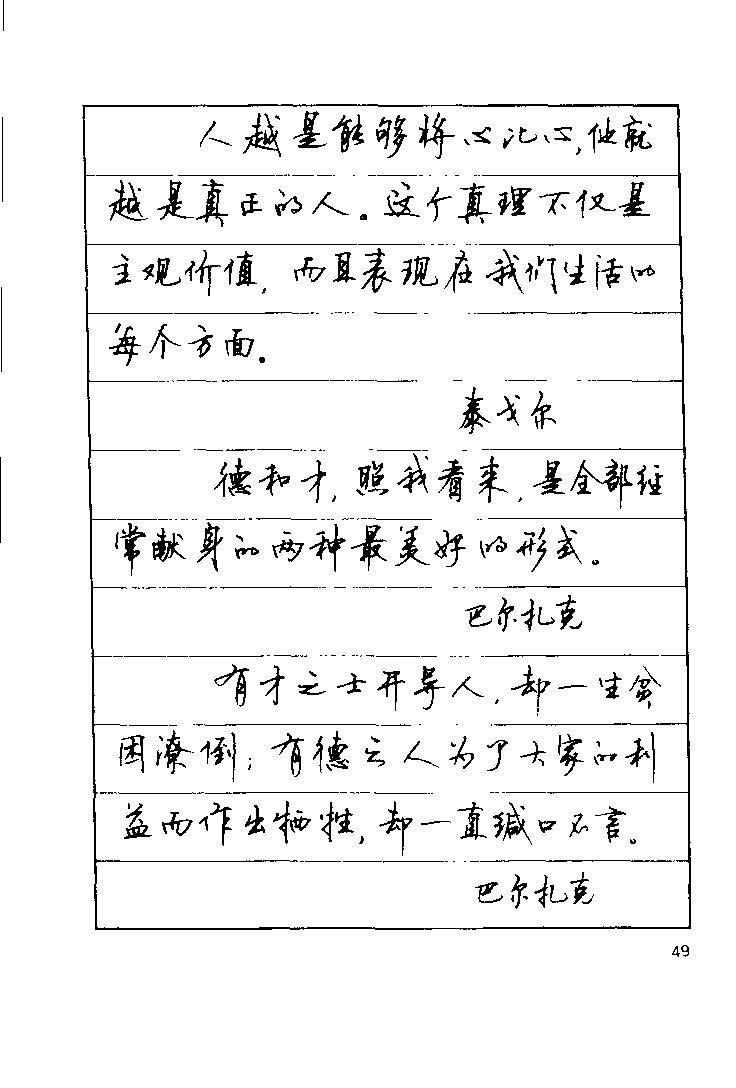 人越是能够将心比心，他就
越是真正的人。这个真理不仅是
主观价值，而且表现在我们生活的
每个方面。
泰戈尔
德和才，照我看来，是全部经
常献身的两种最美好的形式。
巴尔扎克
有才之士开导人，却一生贫
困潦倒；有德之人为了大家的利
益而作出牺牲，却一直缄口不言。
巴尔扎克
49